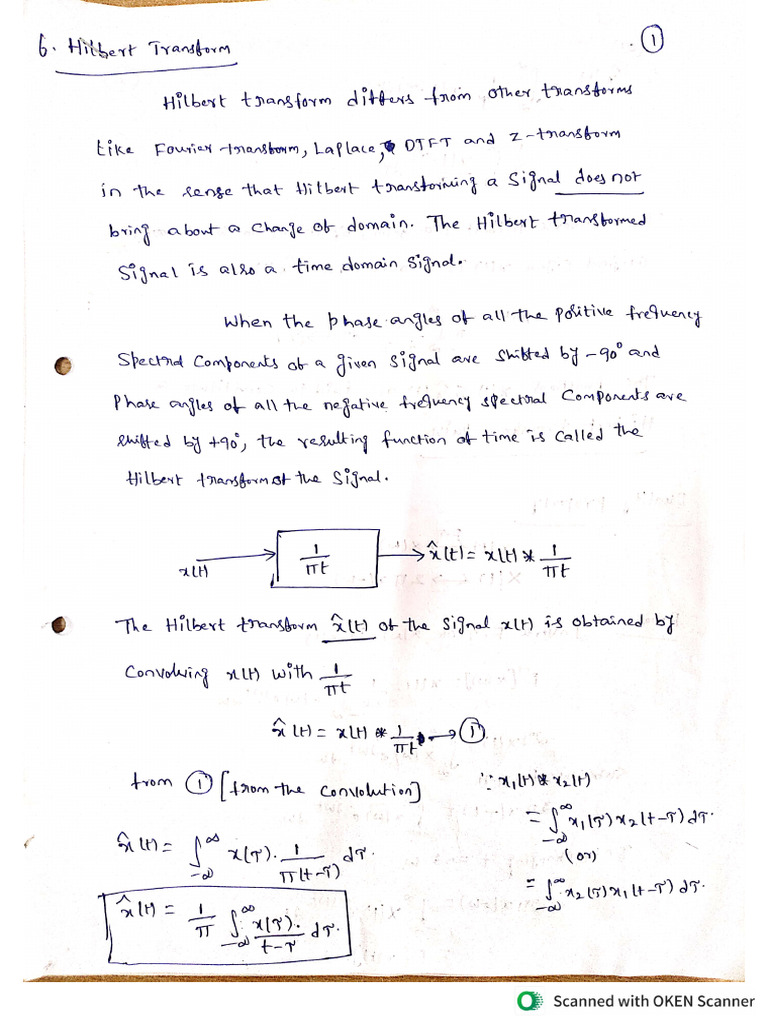 6. Hilbert Transform
①
Hilbert transform differs from other transforms
like Fourier transform, Laplace, DTFT and Z-transform
in the sense that Hilbert transforming a signal does not
bring about a change of domain. The Hilbert transformed
Signal is also a time domain signal.
When the phase angles of all the positive frequency
Spectral Components of a given signal are shifted by -90° and
Phase angles of all the negative frequency spectral Components are
shifted by +90°, the resulting function of time is called the
Hilbert transform of the signal.
x(t) → 1/πt → x̂(t) = x(t) * 1/πt
The Hilbert transform x̂(t) of the signal x(t) is obtained by
Convolving x(t) with 1/πt
x̂(t) = x(t) * 1/πt → ①
from ① [from the convolution]
∵ x₁(t) * x₂(t)
= ∫_{-∞}^{∞} x₁(τ) x₂(t-τ) dτ.
(or)
= ∫_{-∞}^{∞} x₂(τ) x₁(t-τ) dτ.
x̂(t) = ∫_{-∞}^{∞} x(τ). 1/π(t-τ) dτ.
x̂(t) = 1/π ∫_{-∞}^{∞} x(τ)./t-τ dτ.
Scanned with OKEN Scanner